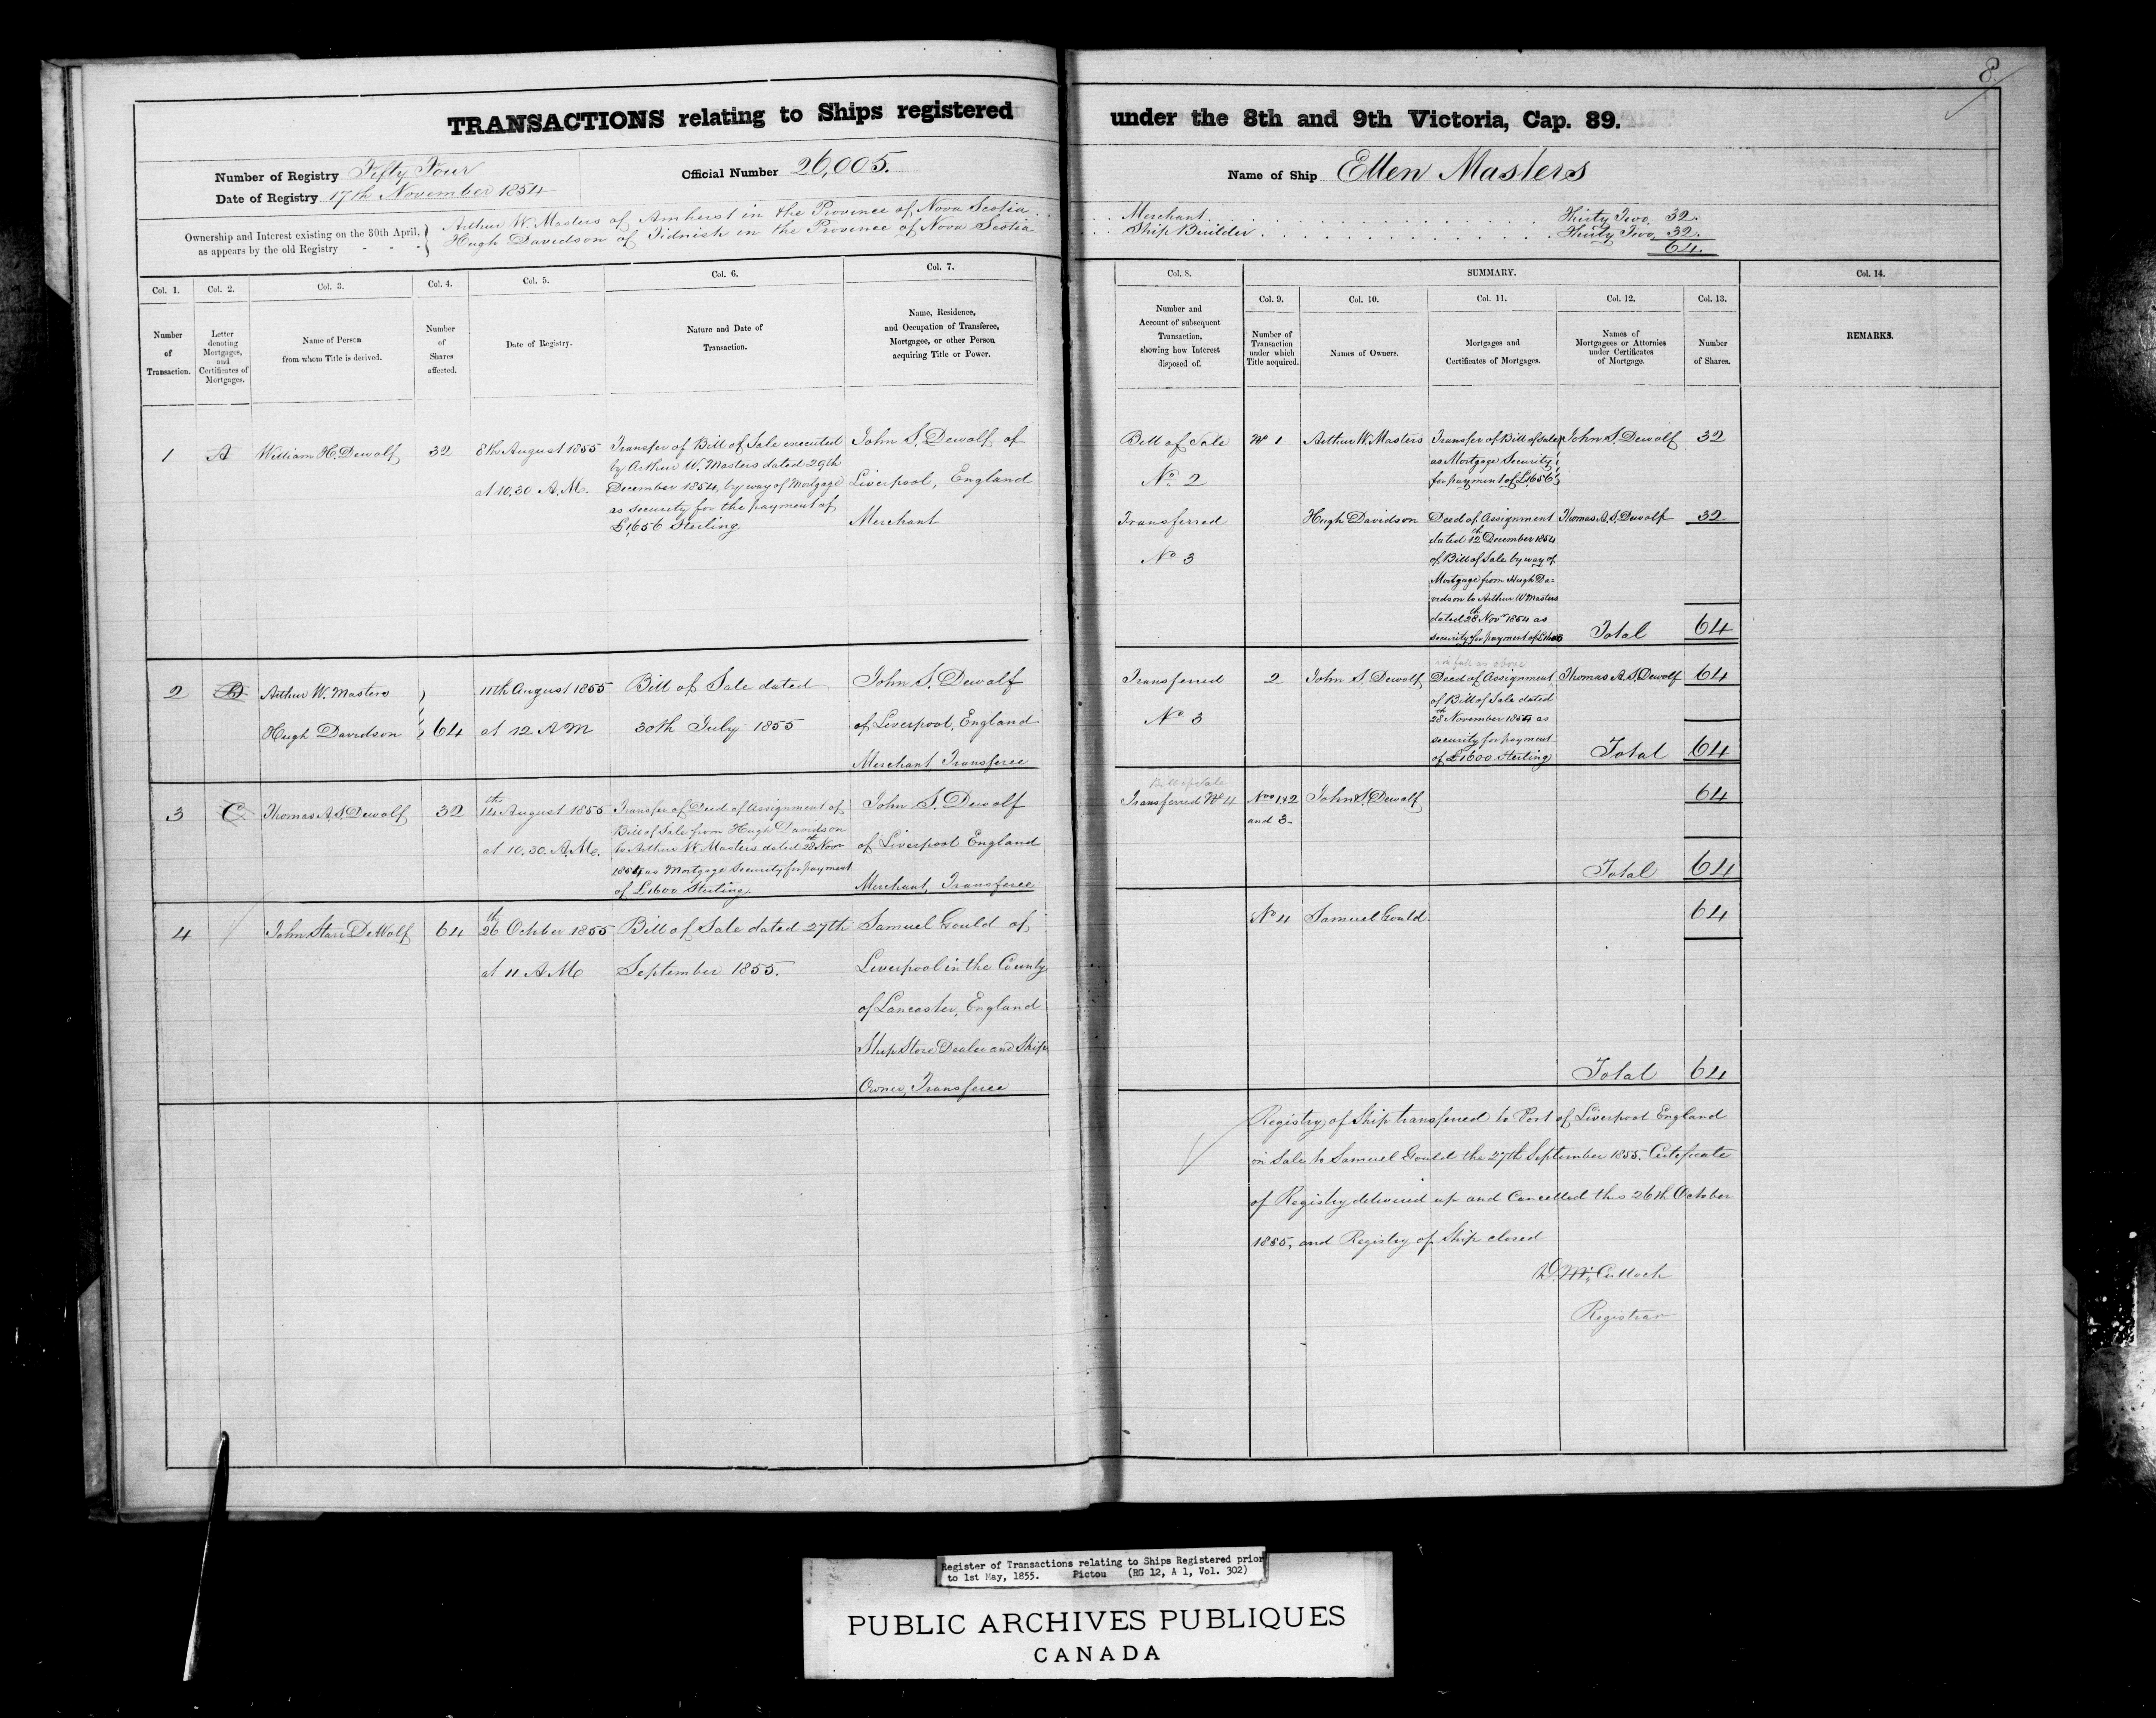 8
TRANSACTIONS relating to Ships registered under the 8th and 9th Victoria, Cap. 89.
Number of Registry Fifty Four
Date of Registry 17th November 1854
Official Number 26,005.
Name of Ship Ellen Masters
Ownership and Interest existing on the 30th April,
as appears by the old Registry - - -
Arthur W. Masters of Amherst in the Province of Nova Scotia . . Merchant . . . . Thirty Two, 32.
Hugh Davidson of Tidnish in the Province of Nova Scotia . . Ship Builder . . . . Thirty Two, 32.
64.
Col. 1.
Number
of
Transaction.
Col. 2.
Letter
denoting
Mortgages,
and
Certificates of
Mortgages.
Col. 3.
Name of Person
from whom Title is derived.
Col. 4.
Number
of
Shares
affected.
Col. 5.
Date of Registry.
Col. 6.
Nature and Date of
Transaction.
Col. 7.
Name, Residence,
and Occupation of Transferee,
Mortgagee, or other Person
acquiring Title or Power.
Col. 8.
Number and
Account of subsequent
Transaction,
showing how Interest
disposed of.
SUMMARY.
Col. 9.
Number of
Transaction
under which
Title acquired.
Col. 10.
Names of Owners.
Col. 11.
Mortgages and
Certificates of Mortgages.
Col. 12.
Names of
Mortgagees or Attornies
under Certificates
of Mortgage.
Col. 13.
Number
of Shares.
Col. 14.
REMARKS.
1
A
William H. Dewolf
32
8th August 1855
at 10.30 A.M.
Transfer of Bill of Sale executed
by Arthur W. Masters dated 29th
December 1854, by way of Mortgage
as security for the payment of
£1,656 Sterling
John S. Dewolf of
Liverpool, England
Merchant
Bill of Sale
No. 2
Transferred
No 3
No 1
Arthur W. Masters
Transfer of Bill of Sale
as Mortgage Security
for payment of £1,656
John S. Dewolf
32
Hugh Davidson
Deed of Assignment
dated 12th December 1854
of Bill of Sale by way of
Mortgage from Hugh Da-
vidson to Arthur W Masters
dated 28th Nov 1854 as
security for payment of £1600
Thomas A. S. Dewolf
32
Total 64
2
B
Arthur W. Masters
Hugh Davidson
64
11th August 1855
at 12 A M
Bill of Sale dated
30th July 1855
John S. Dewolf
of Liverpool, England
Merchant, Transferee
Transferred
No 3
2
John S. Dewolf
in full as above
Deed of Assignment
of Bill of Sale dated
28th November 1854 as
security for payment
of £1600 Sterling
Thomas A. S. Dewolf
64
Total 64
3
C
Thomas A. S. Dewolf
32
14th August 1855
at 10.30. A.M.
Transfer of Deed of Assignment of
Bill of Sale from Hugh Davidson
to Arthur W. Masters dated 28th Novr
1854 as Mortgage Security for payment
of £1600 Sterling.
John S. Dewolf
of Liverpool England
Merchant, Transferee
Bill of Sale
Transferred No 4
Nos 1 & 2
and 3-
John S. Dewolf
64
Total 64
4
John Starr DeWolf
64
26th October 1855
at 11 A.M.
Bill of Sale dated 27th
September 1855.
Samuel Gould of
Liverpool in the County
of Lancaster, England
Ship Store Dealer and Ship
Owner, Transferee
No 4
Samuel Gould
64
Total 64
Registry of Ship transferred to Port of Liverpool England
on Sale to Samuel Gould the 27th September 1855. Certificate
of Registry delivered up and Cancelled this 26th October
1855, and Registry of Ship closed
D. McCulloch
Registrar
Register of Transactions relating to Ships Registered prior
to 1st May, 1855. Pictou (RG 12, A 1, Vol. 302)
PUBLIC ARCHIVES PUBLIQUES
CANADA